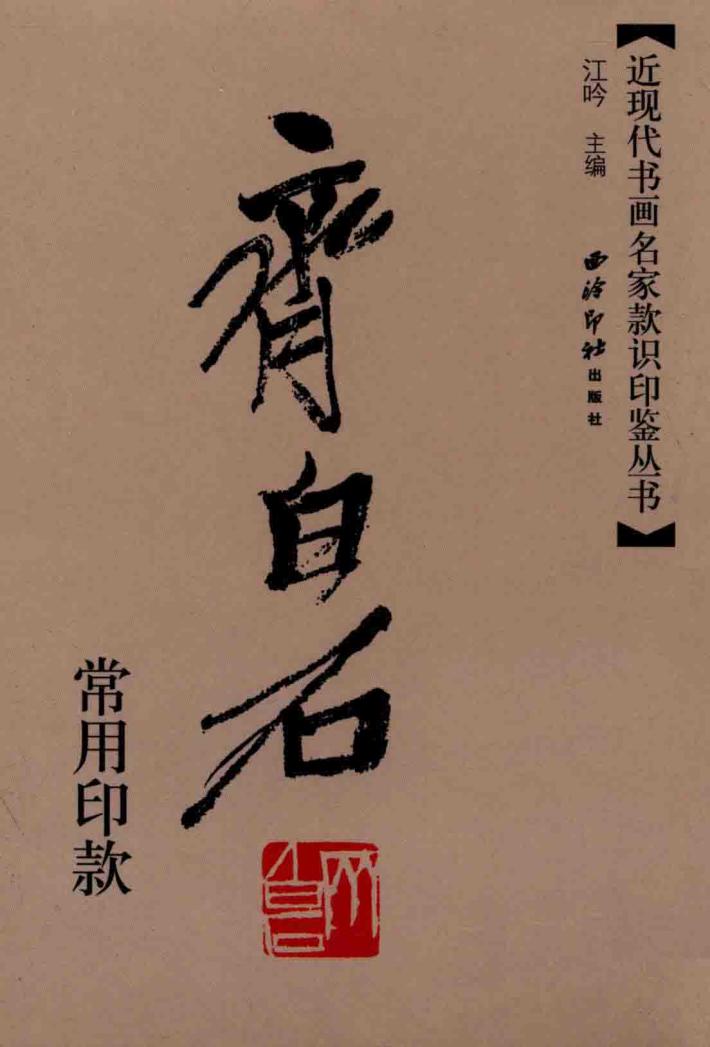 【近现代书画名家款识印鉴丛书】
江吟 主编
西泠印社出版社
齊白石
常用印款